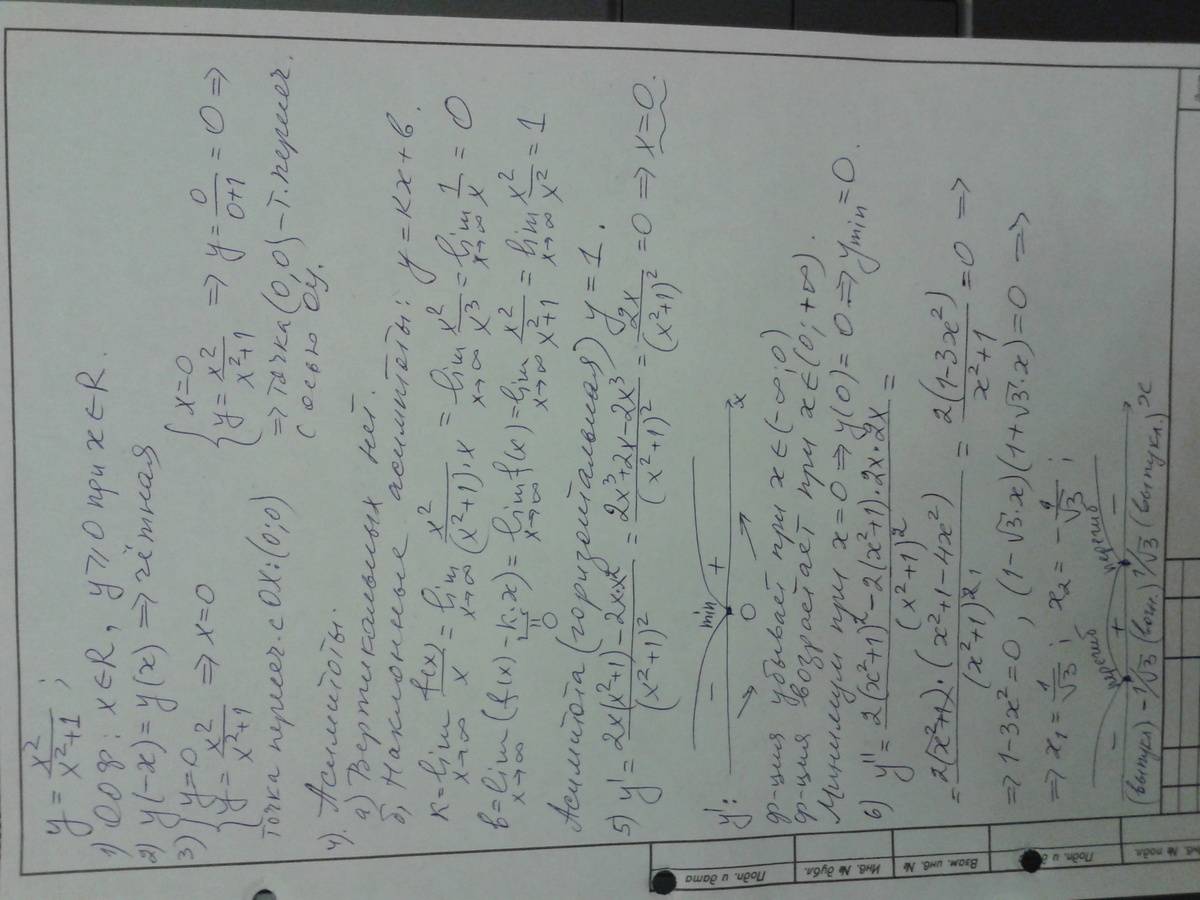 y = x²/(x²+1) ;
1) ООФ: x∈R, y⩾0 при x∈R.
2) y(-x) = y(x) ⇒ чётная
3) { y=0
y = x²/(x²+1) ⇒ x=0
точка пересеч. с ОХ: (0;0)
{ x=0
y = x²/(x²+1) ⇒ y = 0/(0+1) = 0 ⇒
⇒ точка (0,0) – т. пересеч.
с осью ОУ.
4). Асимптоты.
а) Вертикальных нет.
б) Наклонные асимптоты: y = кx + в.
к = lim x→∞ f(x)/x = lim x→∞ x²/((x²+1)·x) = lim x→∞ x²/x³ = lim x→∞ 1/x = 0
в = lim x→∞ (f(x) - k·x) = lim x→∞ f(x) = lim x²/(x²+1) = lim x→∞ x²/x² = 1
0
Асимптота (горизонтальная) y = 1.
5) y' = (2x(x²+1) - 2x·x²)/(x²+1)² = (2x³+2x-2x³)/(x²+1)² = 2x/(x²+1)² = 0 ⇒ x=0.
y':
min
- + x
0
ф-ция убывает при x∈(-∞;0)
ф-ция возрастает при x∈(0;+∞).
Минимум при x=0 ⇒ y(0)=0 ⇒ ymin=0.
6) y'' = (2(x²+1)² - 2(x²+1)·2x·2x)/(x²+1)² =
= 2(x²+1)·(x²+1-4x²)/(x²+1)² = 2(1-3x²)/(x²+1) = 0 ⇒
⇒ 1-3x²=0, (1-√3·x)(1+√3·x)=0 ⇒
⇒ x₁ = 1/√3 ; x₂ = -1/√3 ;
перегиб перегиб
- + -
(выпукл) -1/√3 (вогн.) 1/√3 (выпукл.) x
Подп. и дата
Инв. № дубл.
Взам. инв. №
Подп. и д
нв. № подл.